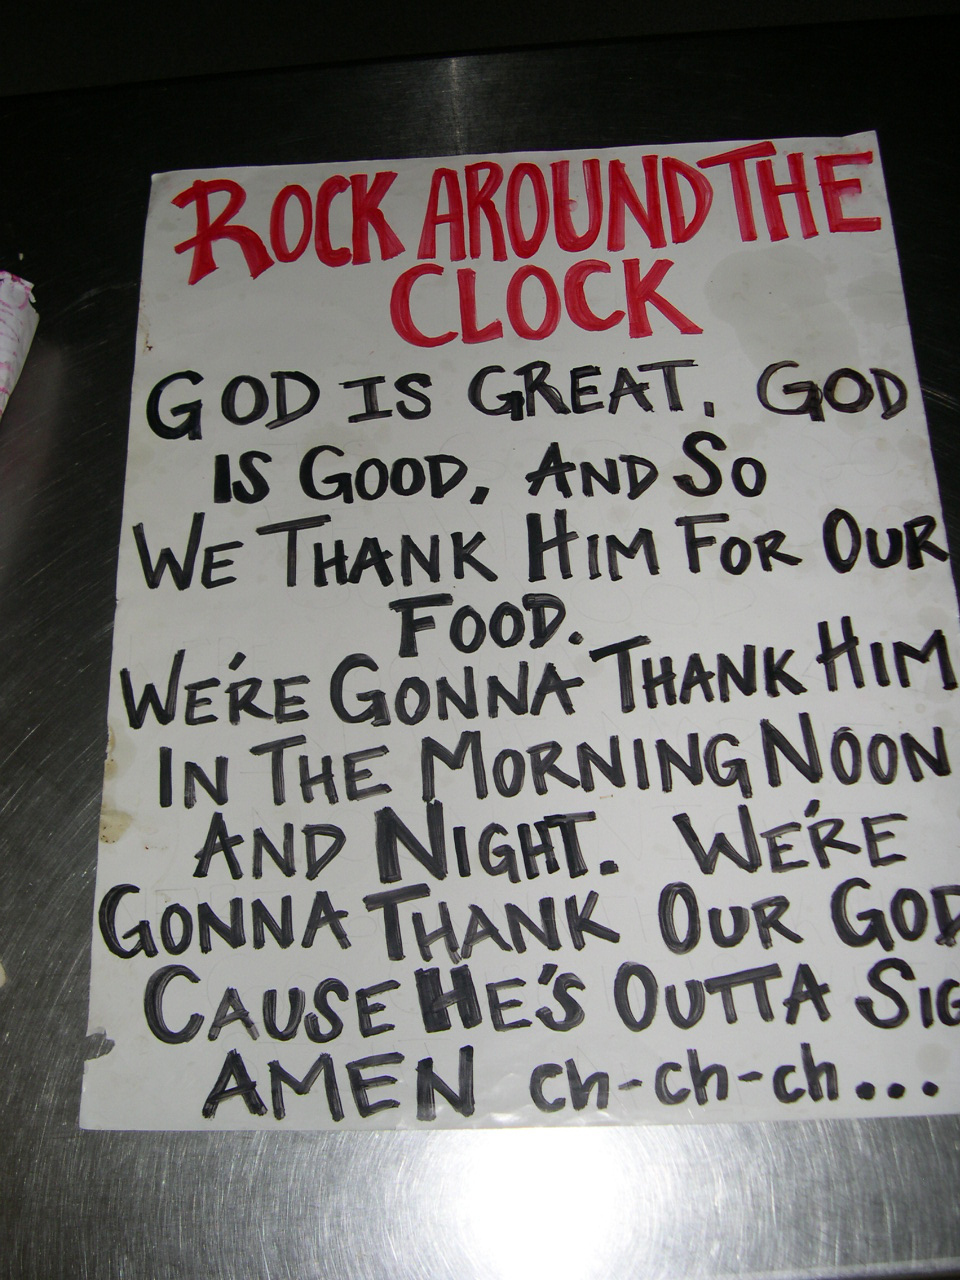 ROCK AROUND THE
CLOCK
GOD IS GREAT, GOD
IS GOOD, AND SO
WE THANK HIM FOR OUR
FOOD.
WE'RE GONNA THANK HIM
IN THE MORNING NOON
AND NIGHT. WE'RE
GONNA THANK OUR GOD
CAUSE HE'S OUTTA SIG
AMEN ch-ch-ch...